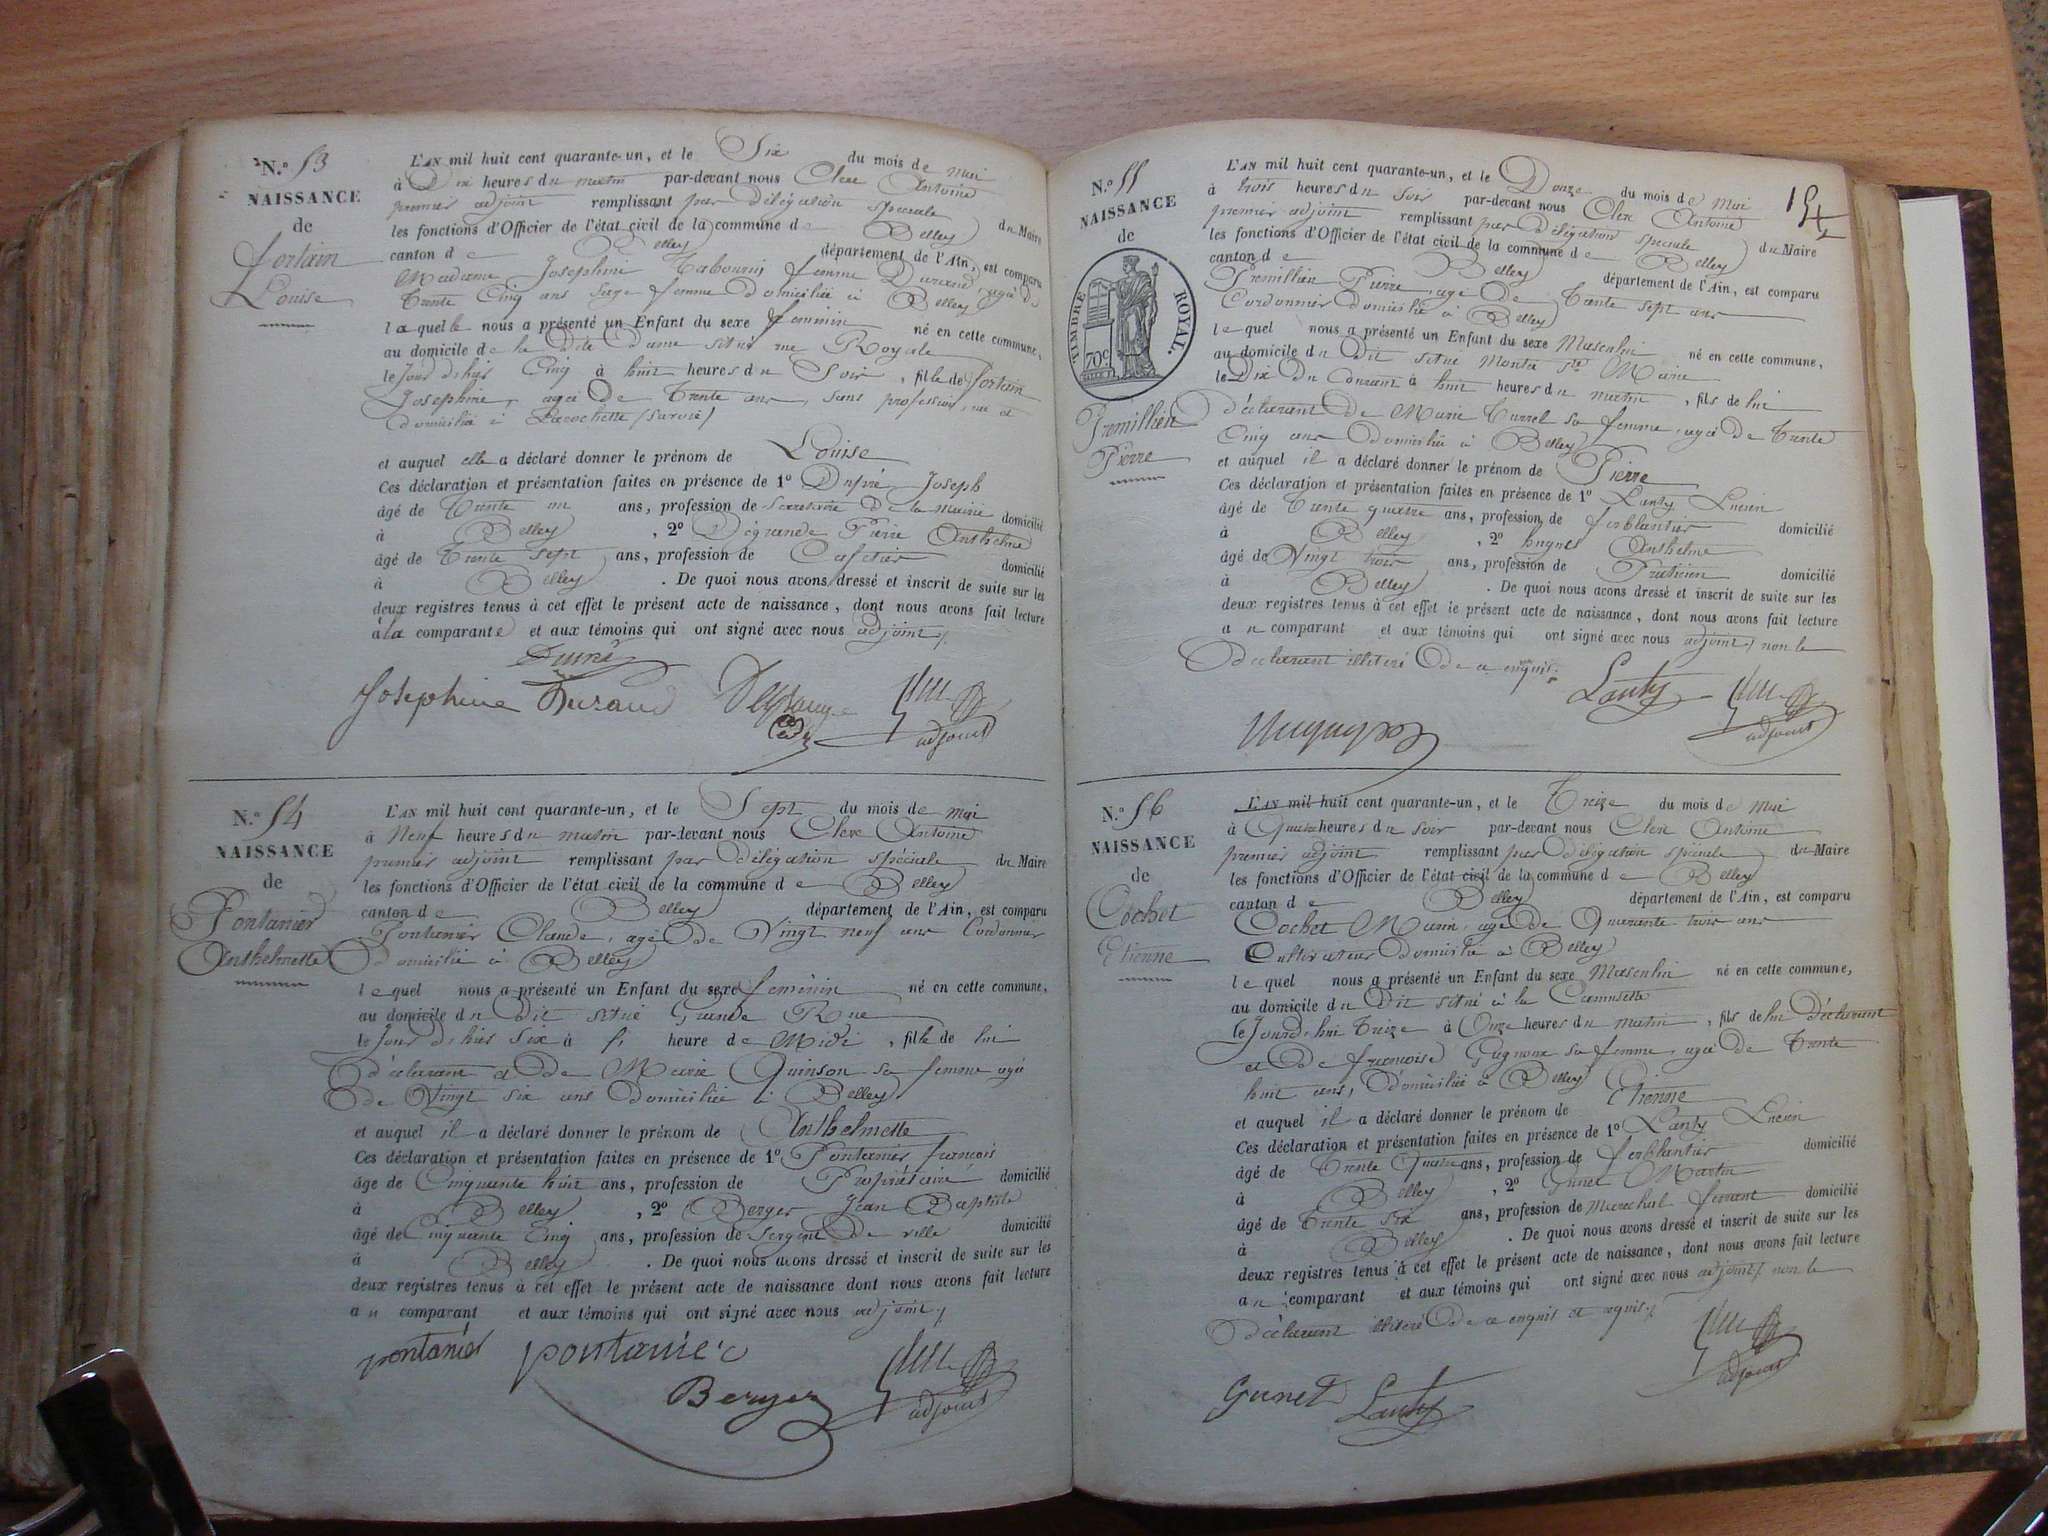 N.º 53
NAISSANCE
de
fortain
Louise
L'AN mil huit cent quarante-un, et le Six du mois de mai
à Dix heures du matin par-devant nous Clerc Antoine
premier adjoint remplissant par délégation spéciale du Maire
les fonctions d'Officier de l'état civil de la commune de Belley
canton de Belley département de l'Ain, est comparu
Madame Josephine Tabourin femme Durand, agée de
Trente Cinq ans Sage femme domiciliée à Belley
laquelle nous a présenté un Enfant du sexe feminin né en cette commune,
au domicile de la Dite Dame situé rue Royale
le Jour d'hier Cinq à huit heures du Soir, fille de fortain
Josephine, agée De Trente ans, sans profession, née et
domiciliée à (Savoie)
et auquel elle a déclaré donner le prénom de Louise
Ces déclaration et présentation faites en présence de 1º Dupré Joseph
âgé de Trente un ans, profession de Secretaire De la Mairie domicilié
à Belley, 2º Degrange Pierre Anthelme
âgé de Trente Sept ans, profession de Cafetier domicilié
à Belley. De quoi nous avons dressé et inscrit de suite sur les
deux registres tenus à cet effet le présent acte de naissance, dont nous avons fait lecture
à la comparante et aux témoins qui ont signé avec nous adjoint
Dupré
Josephine Durand Degrange
adjoint
N.º 54
NAISSANCE
de
Pontanier
Anthelmette
L'AN mil huit cent quarante-un, et le Sept du mois de mai
à Neuf heures du matin par-devant nous Clerc Antoine
premier adjoint remplissant par délégation spéciale du Maire
les fonctions d'Officier de l'état civil de la commune de Belley
canton de Belley département de l'Ain, est comparu
Pontanier Claude, agé de Vingt neuf ans Cordonnier
domicilié à Belley
lequel nous a présenté un Enfant du sexe feminin né en cette commune,
au domicile du Dit situé Grande Rue
le Jour d'hier Six à heure de Midi, fille de lui
déclarant et de Marie Quinson sa femme agée
de Vingt six ans Domiciliée à Belley
et auquel il a déclaré donner le prénom de Anthelmette
Ces déclaration et présentation faites en présence de 1º Pontanier françois
âgé de Cinquante huit ans, profession de Propriétaire domicilié
à Belley, 2º Berger Jean Baptiste
âgé de Cinquante Cinq ans, profession de Sergent De ville domicilié
à Belley. De quoi nous avons dressé et inscrit de suite sur les
deux registres tenus à cet effet le présent acte de naissance dont nous avons fait lecture
au comparant et aux témoins qui ont signé avec nous adjoint
pontanier pontanier
Berger
adjoint
154
N.º 55
NAISSANCE
de
TIMBRE ROYAL.
70c
Premillieu
Pierre
L'AN mil huit cent quarante-un, et le Douze du mois de mai
à trois heures du soir par-devant nous Clerc Antoine
premier adjoint remplissant par délégation spéciale du Maire
les fonctions d'Officier de l'état civil de la commune de Belley
canton de Belley département de l'Ain, est comparu
Premillieu Pierre, agé de Trente sept ans
Cordonnier domicilié à Belley
lequel nous a présenté un Enfant du sexe Masculin né en cette commune,
au domicile du Dit situé Ste Marie
le Dix Du Courant à huit heures du matin, fils de lui
déclarant De Marie sa femme, agée de Trente
Cinq ans Domiciliée à Belley
et auquel il a déclaré donner le prénom de Pierre
Ces déclaration et présentation faites en présence de 1º Lanty Lucien
âgé de Trente quatre ans, profession de ferblantier domicilié
à Belley, 2º hugues Anthelme
âgé de Vingt trois ans, profession de Praticien domicilié
à Belley. De quoi nous avons dressé et inscrit de suite sur les
deux registres tenus à cet effet le présent acte de naissance, dont nous avons fait lecture
au comparant et aux témoins qui ont signé avec nous adjoint non le
déclarant De ce enquis
Lanty
adjoint
N.º 56
NAISSANCE
de
Cochet
Etienne
L'AN mil huit cent quarante-un, et le Treize du mois de mai
à Quatre heures du soir par-devant nous Clerc Antoine
premier adjoint remplissant par délégation spéciale du Maire
les fonctions d'Officier de l'état civil de la commune de Belley
canton de Belley département de l'Ain, est comparu
Cochet Marin, agé de Quarante trois ans
Cultivateur domicilié à Belley
lequel nous a présenté un Enfant du sexe Masculin né en cette commune,
au domicile du Dit situé à la Camusette
le Jourd'hui Treize à Onze heures du matin, fils de lui déclarant
et de françoise sa femme, agée de Trente
huit ans, Domiciliée à Belley
et auquel il a déclaré donner le prénom de Etienne
Ces déclaration et présentation faites en présence de 1º Lanty Lucien
âgé de Trente Quatre ans, profession de ferblantier domicilié
à Belley, 2º Gunet Martin
âgé de Trente six ans, profession de Marechal ferrant domicilié
à Belley. De quoi nous avons dressé et inscrit de suite sur les
deux registres tenus à cet effet le présent acte de naissance, dont nous avons fait lecture
au comparant et aux témoins qui ont signé avec nous adjoint non le
déclarant De ce enquis et requis
Gunet Lanty
adjoint